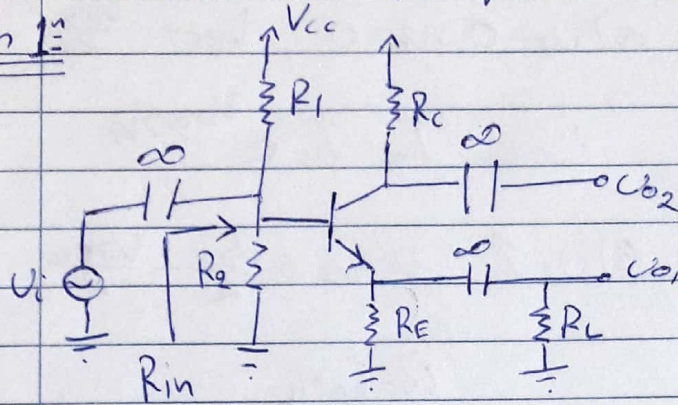 n 1:
Vcc
R1
RC
∞
∞
Vo2
R2
∞
Vo1
Vi
RE
RL
Rin